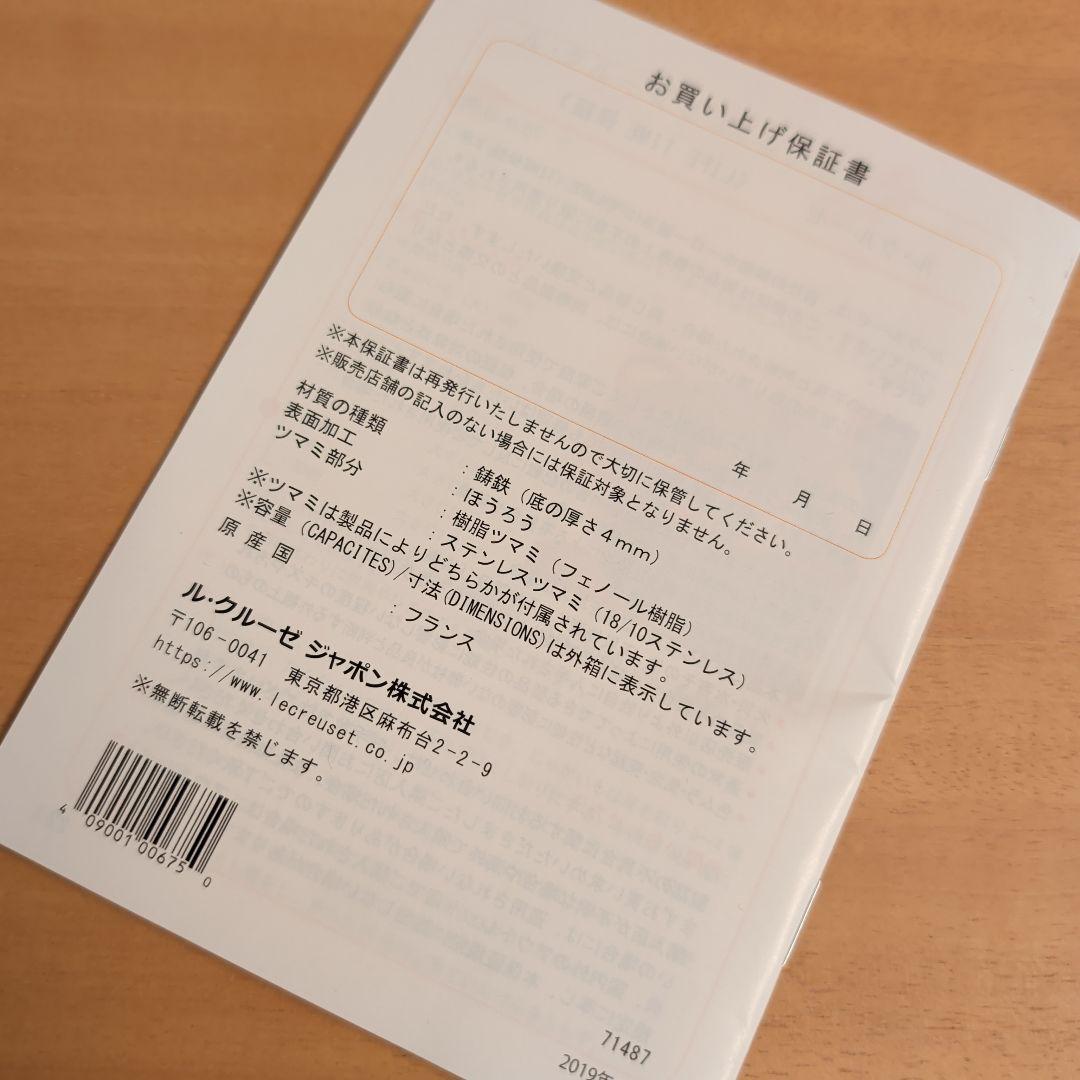 お買い上げ保証書
年 月 日
※本保証書は再発行いたしませんので大切に保管してください。
※販売店舗の記入のない場合には保証対象となりません。
材質の種類 : 鋳鉄 (底の厚さ4mm)
表面加工 : ほうろう
ツマミ部分 : 樹脂ツマミ (フェノール樹脂)
: ステンレスツマミ (18/10ステンレス)
※ツマミは製品によりどちらかが付属されています。
※容量 (CAPACITES)/寸法(DIMENSIONS)は外箱に表示しています。
原産国 : フランス
ル・クルーゼ ジャポン株式会社
〒106-0041 東京都港区麻布台2-2-9
https://www.lecreuset.co.jp
※無断転載を禁じます。
4 09001 00675 0
71487
2019年